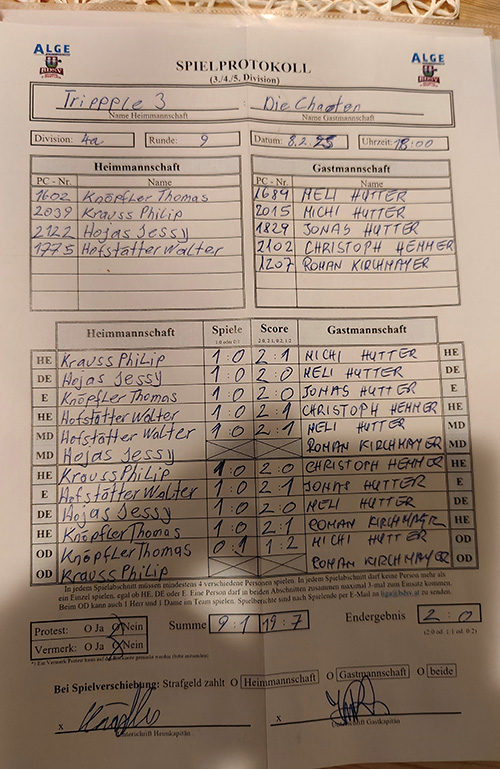 ALGE
BDSV
ALGE
BDSV
SPIELPROTOKOLL
(3./4./5. Division)
Trippple 3 : Die Chaoten
Name Heimmannschaft Name Gastmannschaft
Division: 4a Runde: 9 Datum: 8.2.25 Uhrzeit: 18:00
Heimmannschaft Gastmannschaft
PC - Nr. Name PC - Nr. Name
1602 Knöpfler Thomas 1689 MELI HUTTER
2039 Krauss Philip 2015 MICHI HUTTER
2122 Hojas Jessy 1829 JONAS HUTTER
1775 Hofstätter Walter 2102 CHRISTOPH HEMMER
1207 ROMAN KIRCHMAYER
Heimmannschaft Spiele Score Gastmannschaft
1:0 oder 0:1 2:0, 2:1, 0:2, 1:2
HE Krauss Philip 1:0 2:1 MICHI HUTTER HE
DE Hojas Jessy 1:0 2:0 MELI HUTTER DE
E Knöpfler Thomas 1:0 2:0 JONAS HUTTER E
HE Hofstätter Walter 1:0 2:1 CHRISTOPH HEMMER HE
MD Hofstätter Walter 1:0 2:1 MELI HUTTER MD
MD Hojas Jessy ROMAN KIRCHMAYER MD
HE Krauss Philip 1:0 2:0 CHRISTOPH HEMMER HE
E Hofstätter Walter 1:0 2:1 JONAS HUTTER E
DE Hojas Jessy 1:0 2:0 MELI HUTTER DE
HE Knöpfler Thomas 1:0 2:1 ROMAN KIRCHMAYER HE
OD Knöpfler Thomas 0:1 1:2 MICHI HUTTER OD
OD Krauss Philip ROMAN KIRCHMAYER OD
In jedem Spielabschnitt müssen mindestens 4 verschiedene Personen spielen. In jedem Spielabschnitt darf keine Person mehr als
ein Einzel spielen, egal ob HE, DE oder E. Eine Person darf in beiden Abschnitten zusammen maximal 3-mal zum Einsatz kommen.
Beim OD kann auch 1 Herr und 1 Dame im Team spielen. Spielberichte sind nach Spielende per E-Mail an liga@bdsv.at zu senden.
Protest: O Ja O Nein Summe 9:1 19:7 Endergebnis 2:0
Vermerk: O Ja O Nein (2:0 od. 1:1 od. 0:2)
Bei Spielverschiebung: Strafgeld zahlt O Heimmannschaft O Gastmannschaft O beide
x x
Unterschrift Heimkapitän Unterschrift Gastkapitän